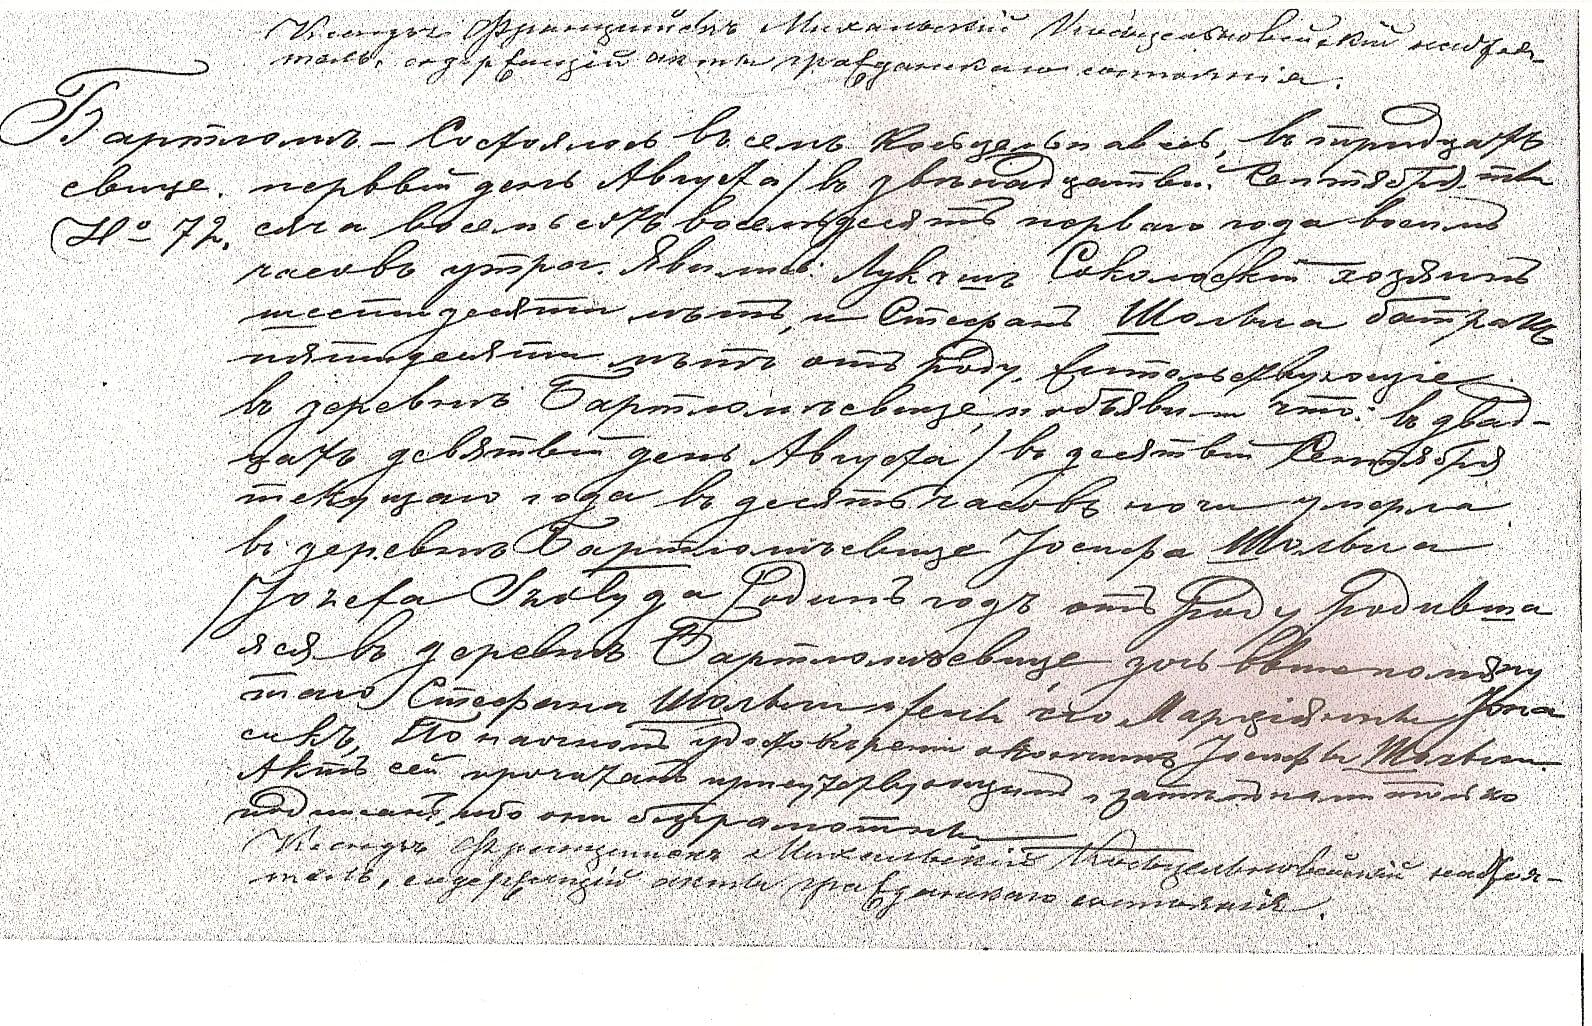 Ксендзъ Францишекъ Михальскій Кобцельновейскій настоя-
тель, содержащій акты гражданскаго состоянія.
Бартломѣ- Состоялось въ селѣ въ тридцать
евице. первый день Августа / въ двѣнадцатый Сентября мѣ
№ 72. сяца восемьсотъ восемьдесятъ перваго года восемь
часовъ утра. Явились: Лукашъ Соколовскій хозяинъ
шестидесяти лѣтъ, и Стефанъ Шолыга батракъ
пятидесяти лѣтъ отъ роду, жительствующіе
въ деревнѣ Бартломѣевице, и объявили что: въ двад-
цать девятый день Августа / въ десятый Сентября
текущаго года въ десять часовъ ночи умерла
въ деревнѣ Бартломѣевице Іосифа Шолыга
/Jozefa Szołyga/ одинъ годъ отъ роду родивша
яся въ деревнѣ Бартломѣевице, дочь вышепомяну
таго Стефана Шолыги и жены его Марціянны
По наочномъ удостовѣреніи о кончинѣ Іосифы Шолыги.
Актъ сей прочитанъ присутствующимъ, затѣмъ нами только
подписанъ, ибо они безграмотны.
Ксендзъ Францишекъ Михальскій настоя-
тель, содержащій акты гражданскаго состоянія.